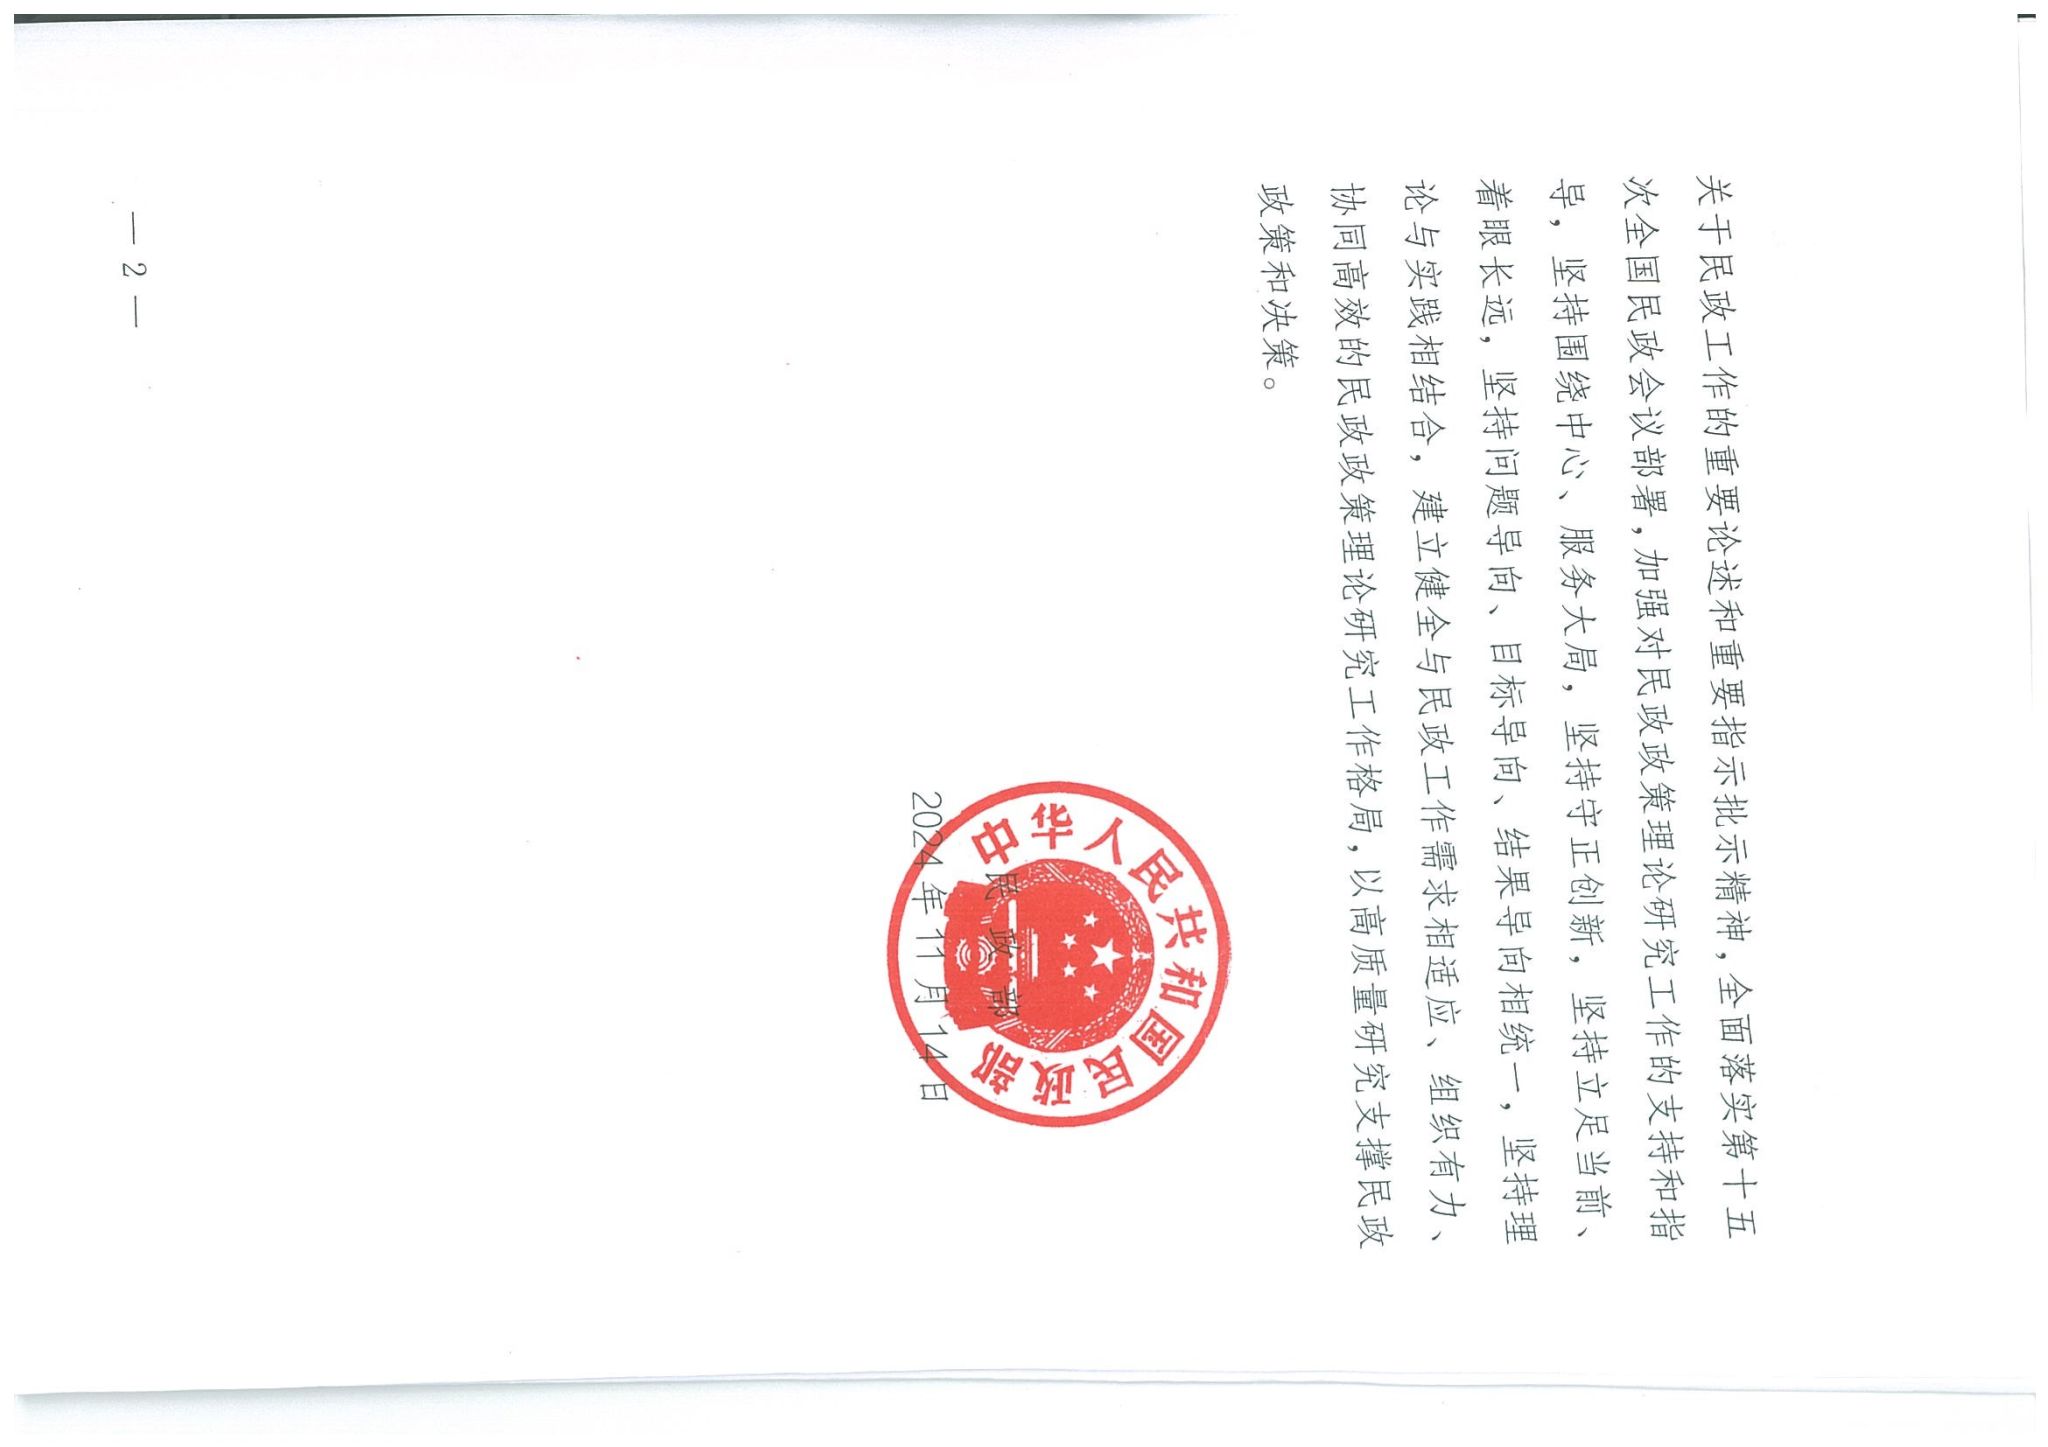 关于民政工作的重要论述和重要指示批示精神，全面落实第十五
次全国民政会议部署，加强对民政政策理论研究工作的支持和指
导，坚持围绕中心、服务大局，坚持守正创新，坚持立足当前、
着眼长远，坚持问题导向、目标导向、结果导向相统一，坚持理
论与实践相结合，建立健全与民政工作需求相适应、组织有力、
协同高效的民政政策理论研究工作格局，以高质量研究支撑民政
政策和决策。
中华人民共和国民政部
民政部
2024年11月14日
— 2 —